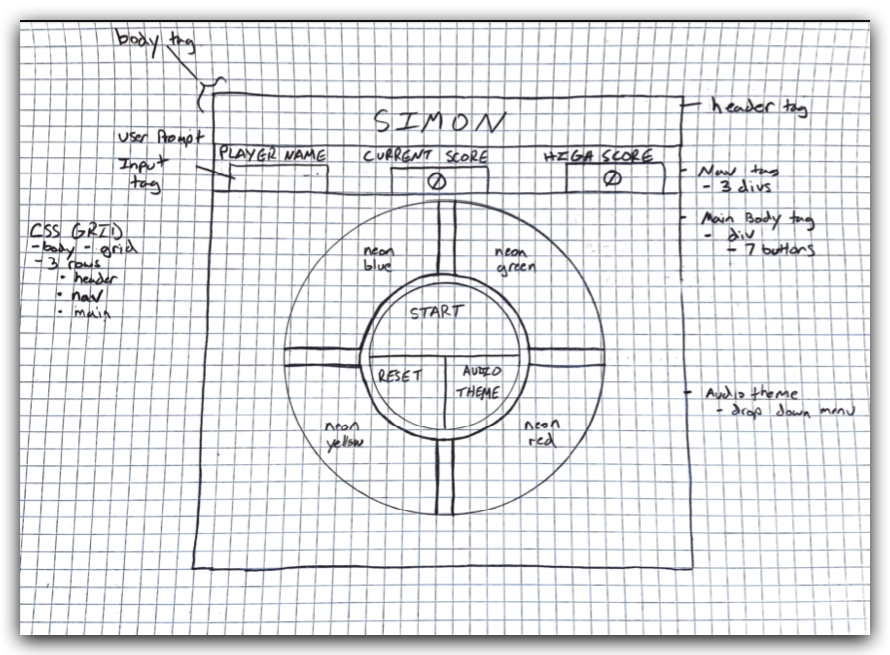 body tag
header tag
SIMON
User Prompt
Input
tag
PLAYER NAME
CURRENT SCORE
HIGH SCORE
0
0
Nav tag
- 3 divs
Main Body tag
- div
- 7 buttons
CSS GRID
- body - grid
- 3 rows
• header
• nav
• main
neon
blue
neon
green
START
RESET
AUDIO
THEME
neon
yellow
neon
red
Audio theme
- drop down menu